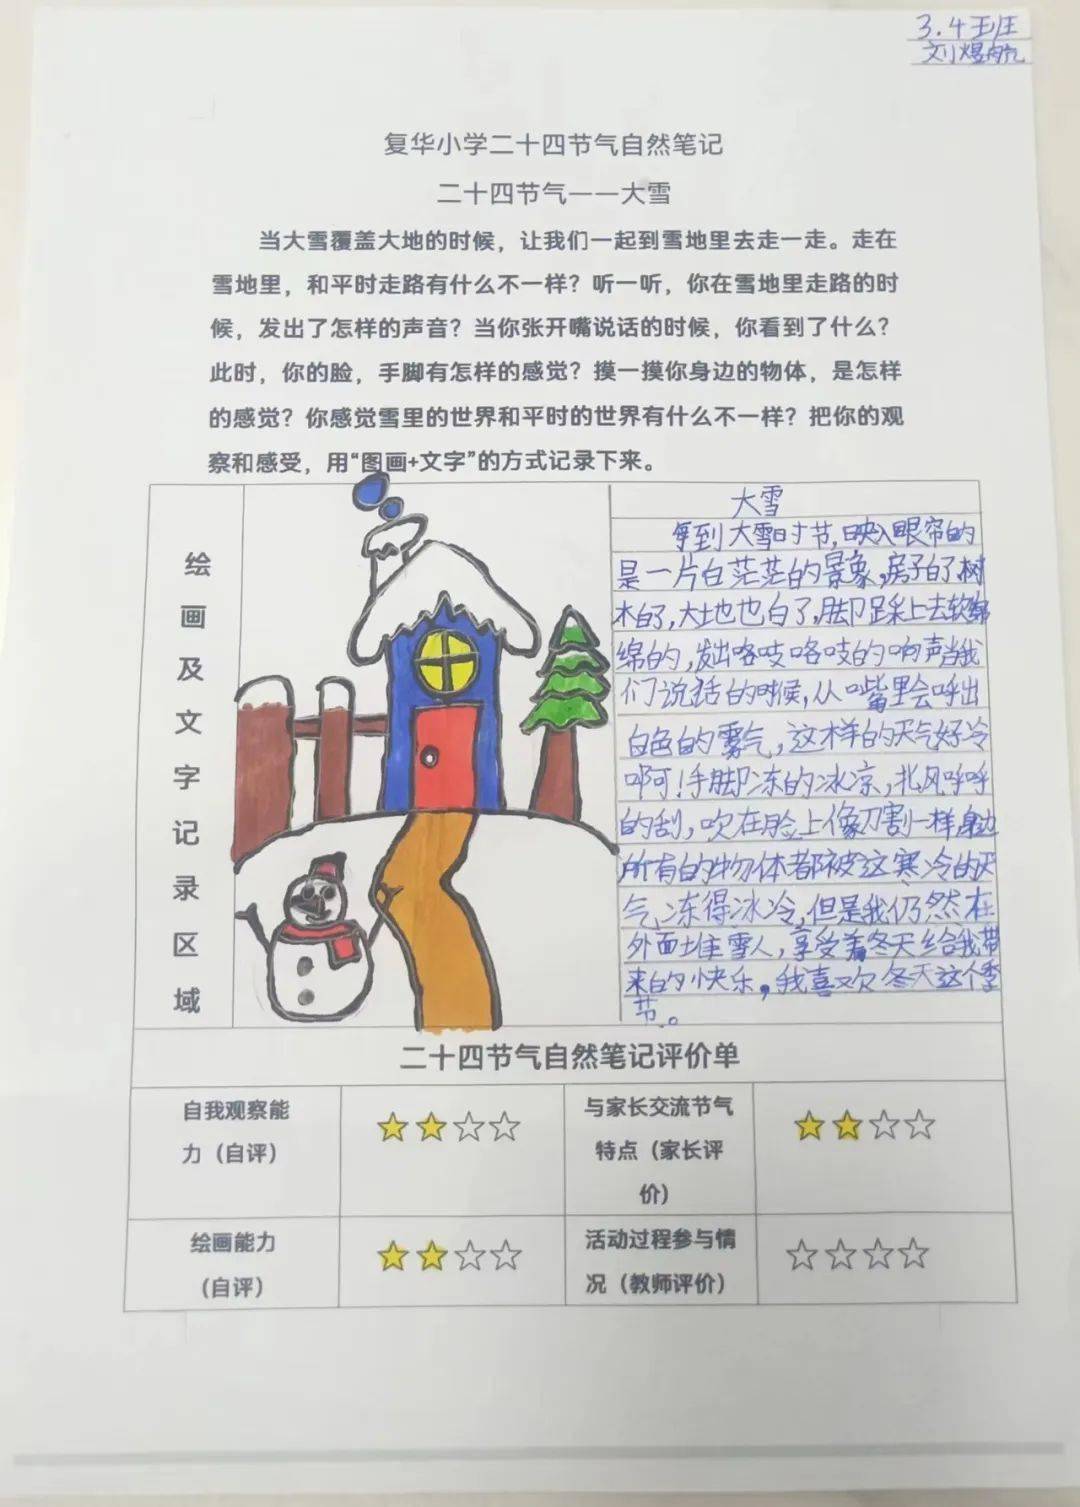 3.4班
刘煜航
复华小学二十四节气自然笔记
二十四节气——大雪
当大雪覆盖大地的时候，让我们一起到雪地里去走一走。走在
雪地里，和平时走路有什么不一样？听一听，你在雪地里走路的时
候，发出了怎样的声音？当你张开嘴说话的时候，你看到了什么？
此时，你的脸，手脚有怎样的感觉？摸一摸你身边的物体，是怎样
的感觉？你感觉雪里的世界和平时的世界有什么不一样？把你的观
察和感受，用“图画+文字”的方式记录下来。
绘画及文字记录区域
大雪
每到大雪时节，映入眼帘的
是一片白茫茫的景象，房子白了，树
木白了，大地也白了，脚踩上去软绵
绵的，发出咯吱咯吱的响声，当我
们说话的时候，从嘴里会呼出
白色的雾气，这样的天气好冷
啊！手脚冻的冰凉，北风呼呼
的刮，吹在脸上像刀割一样，身边
所有的物体都被这寒冷的天
气，冻得冰冷，但是我仍然在
外面堆雪人，享受着冬天给我带
来的快乐，我喜欢冬天这个季
节。
二十四节气自然笔记评价单
自我观察能
力（自评）
与家长交流节气
特点（家长评
价）
绘画能力
（自评）
活动过程参与情
况（教师评价）